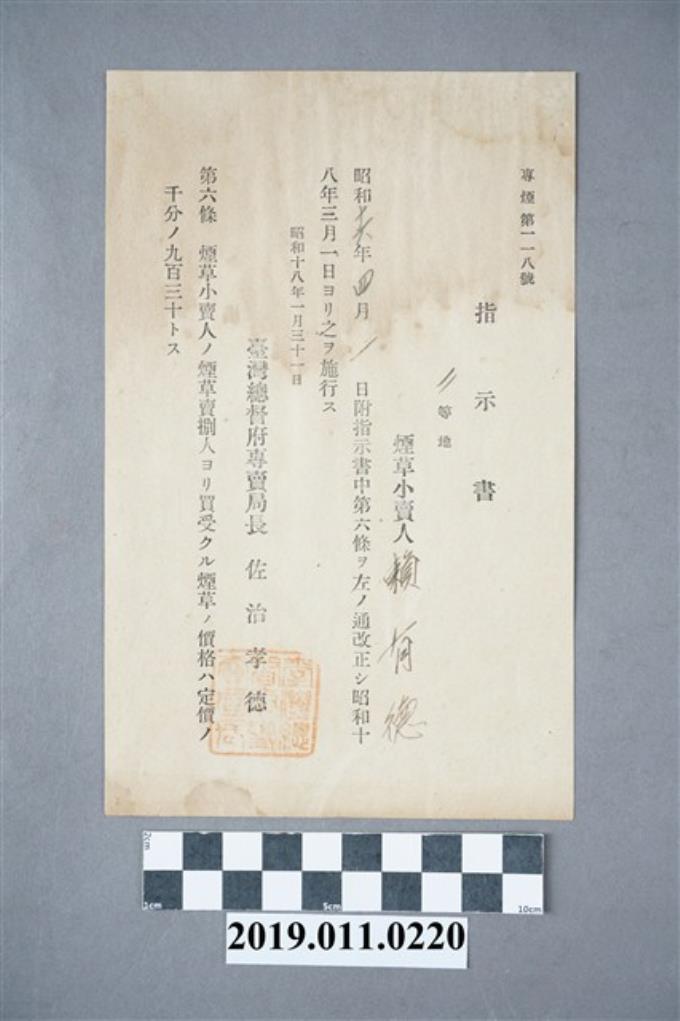 專煙第一一八號
指示書
等地
煙草小賣人 賴有德
昭和十六年四月一日附指示書中第六條ヲ左ノ通改正シ昭和十
八年三月一日ヨリ之ヲ施行ス
昭和十八年一月三十一日
臺灣總督府專賣局長 佐治孝德
第六條 煙草小賣人ノ煙草賣捌人ヨリ買受クル煙草ノ價格ハ定價ノ
千分ノ九百三十トス
2cm
1cm 5cm 10cm
2019.011.0220